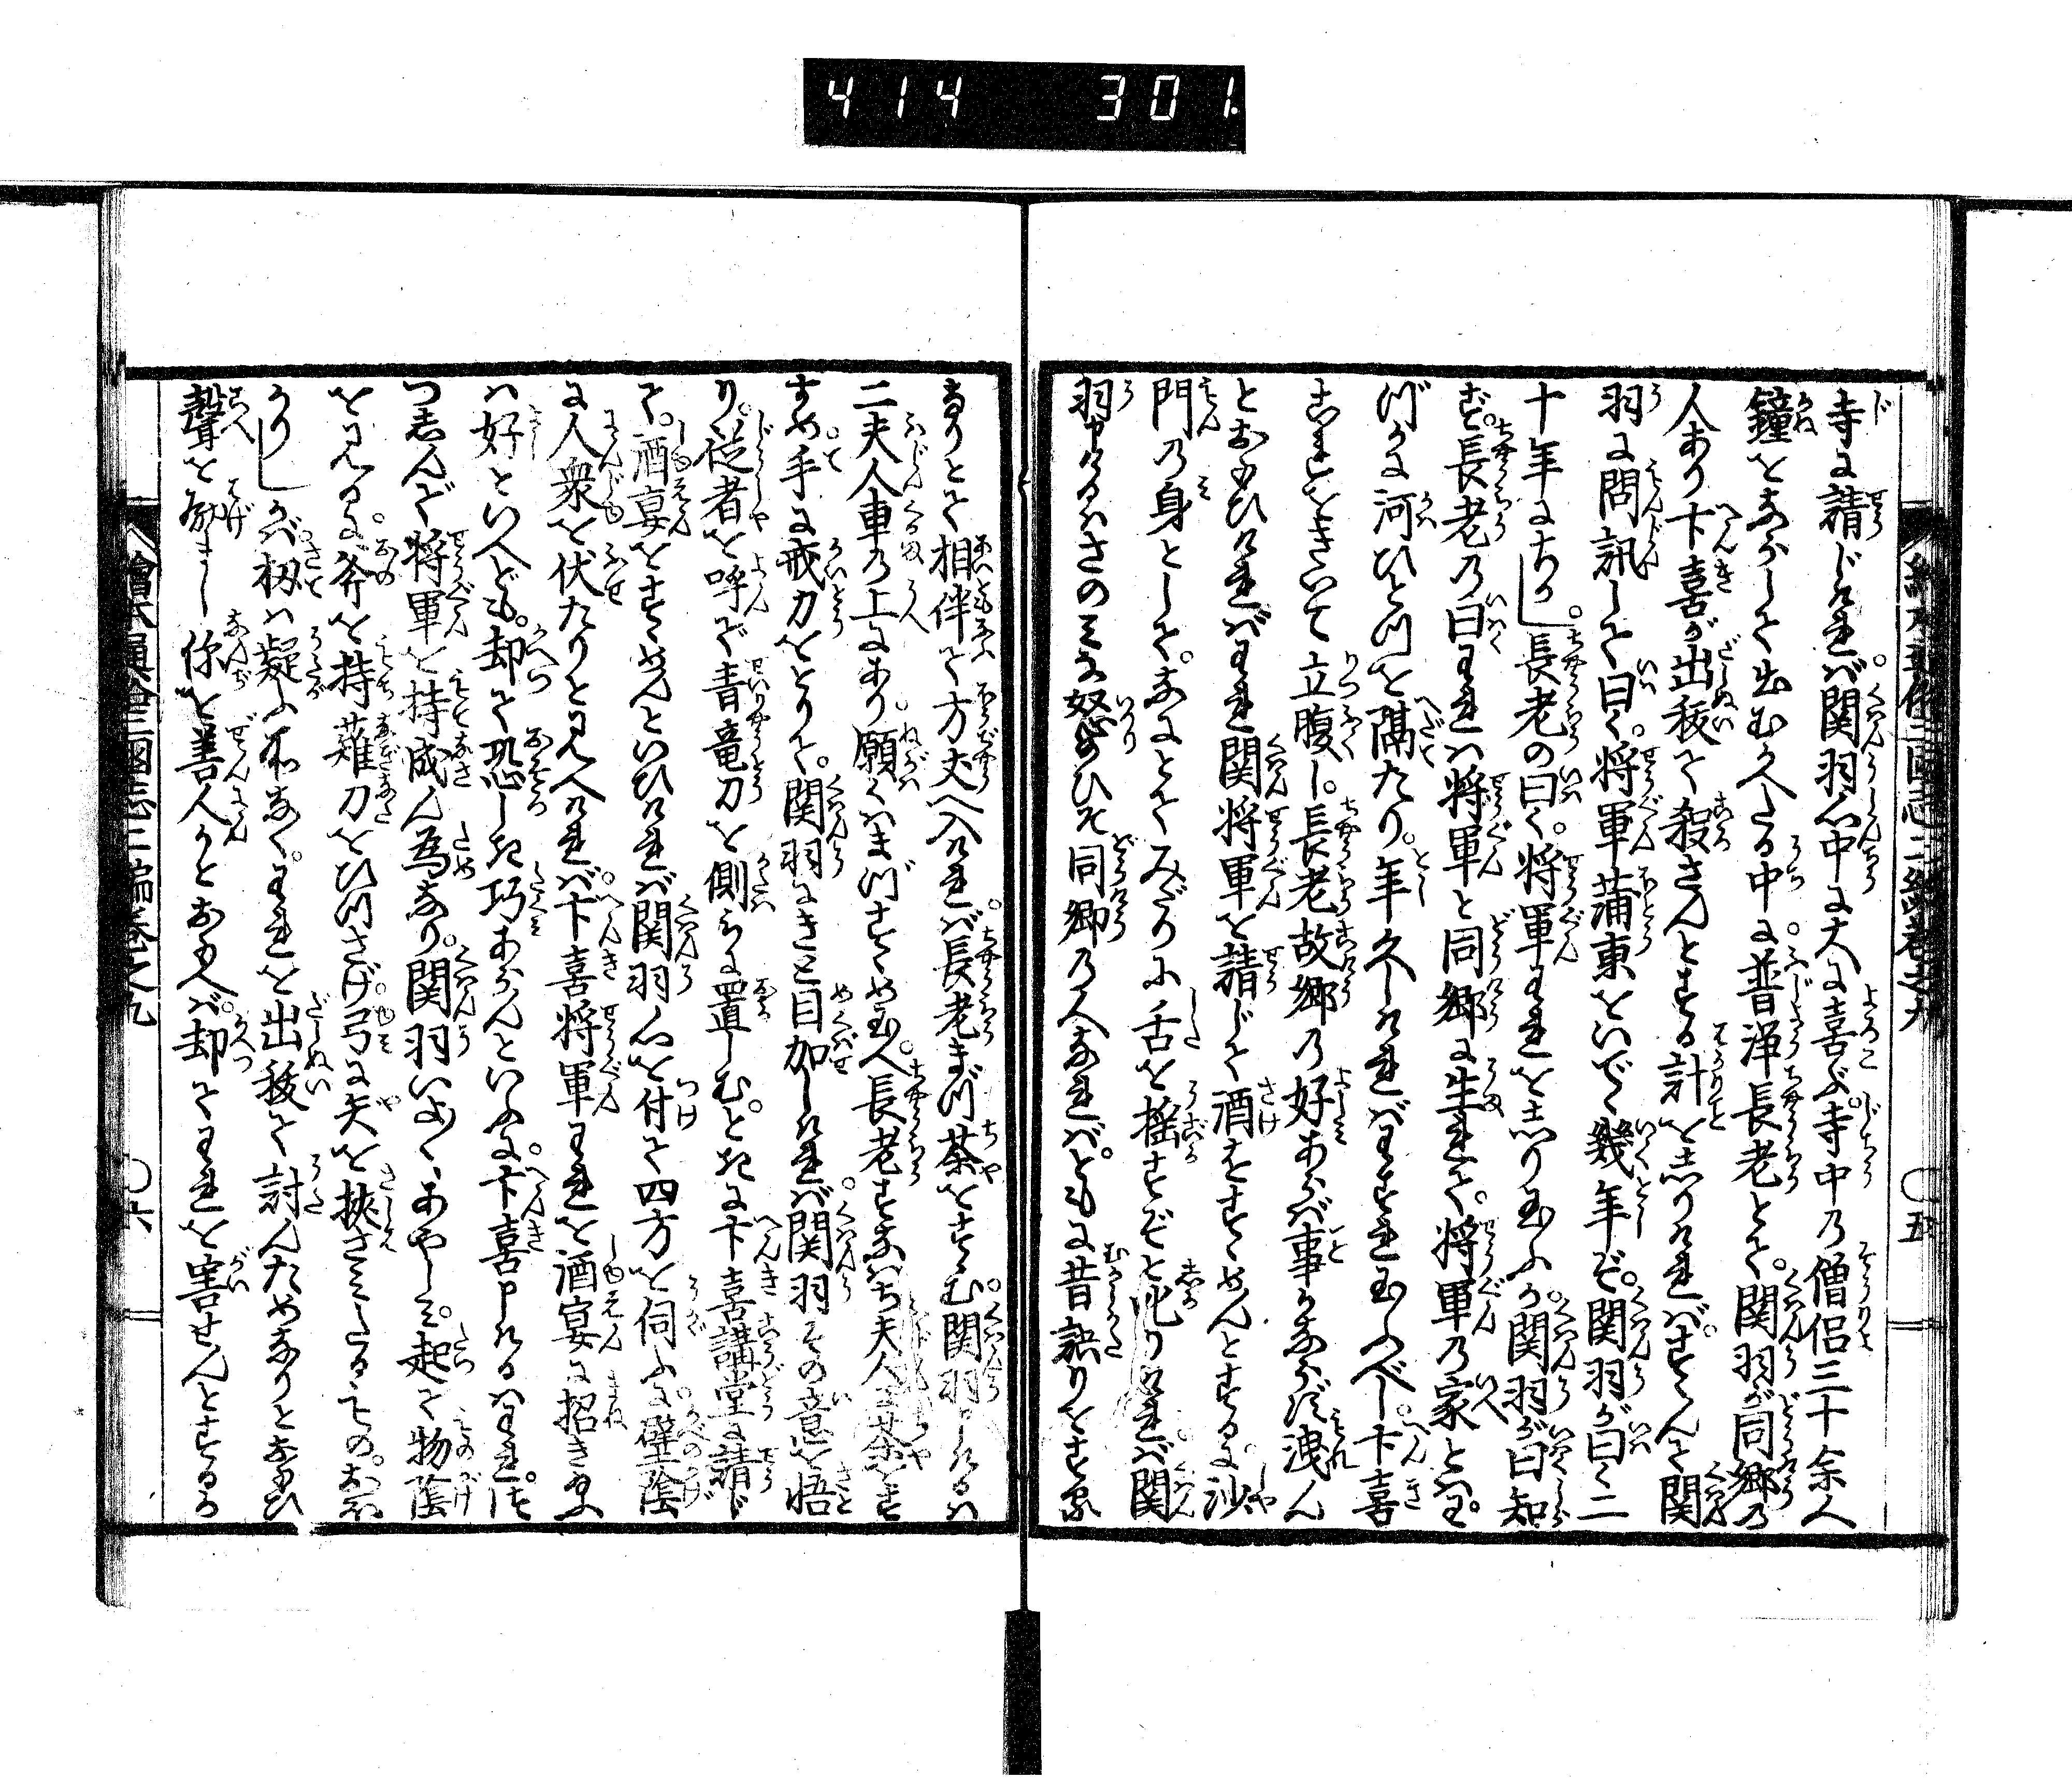 414 301
寺に請じければ。関羽心中に大に喜ぶ。寺中の僧侶三十余人
鐘をならして出むかへたる中に。普浄長老とて。関羽が同郷の
人あり卞喜が出抜て殺さんとする計をしりければ。すゝんで関
羽に問訊して曰く。将軍蒲東をいでゝ幾年ぞ。関羽が曰く二
十年にちかし。長老の曰く。将軍われをしり玉ふか。関羽が曰知
ず。長老の曰われは将軍と同郷に生れて。将軍の家とはわ
づかに河ひとつを隔たり。年久しければわすれ玉ふべし。卞喜
これをきいて立腹し。長老故郷の好あらば事かならず洩ん
とおもひければわれ関将軍を請じて酒をすゝめんとするに。沙
門の身として。なにとてみだりに舌を揺すぞと叱りければ。関
羽申けるはさのみな怒りひそ同郷の人なれば。ともに昔語りをすべ
きなりとて相伴て方丈へ入ければ。長老まづ茶をすゝむ。関羽申けるは
二夫人車の上にあり。願くはまづすゝめ玉へ。長老すなはち夫人に茶をす
すめ。手に戒刀をとりて。関羽にきと目加しければ。関羽その意を悟
り。従者を呼で青竜刀を側らに置しむ。ときに卞喜講堂に請じ
て。酒宴をすゝめんといひければ関羽心を付て四方を伺ふに。壁陰
に人衆を伏たりと見へければ。卞喜将軍われを酒宴に招き玉ふ
は好といへども。却て恐しき巧あらんといふに。卞喜申けるはわれ。つゝ
つしんで将軍を持成ん為なり。関羽いよ〳〵あやしみ。起て物陰
を見るに。斧を持薙刀をひつさげ。弓に矢を挟さみたるもの。おほ
かりしかば扨は疑ふ所なく。われを出抜て討んためなりとおもひ
聲を励まし你を善人かとおもへば。却てわれを害せんとするか
五
繪本通俗三國志二編巻之九
六